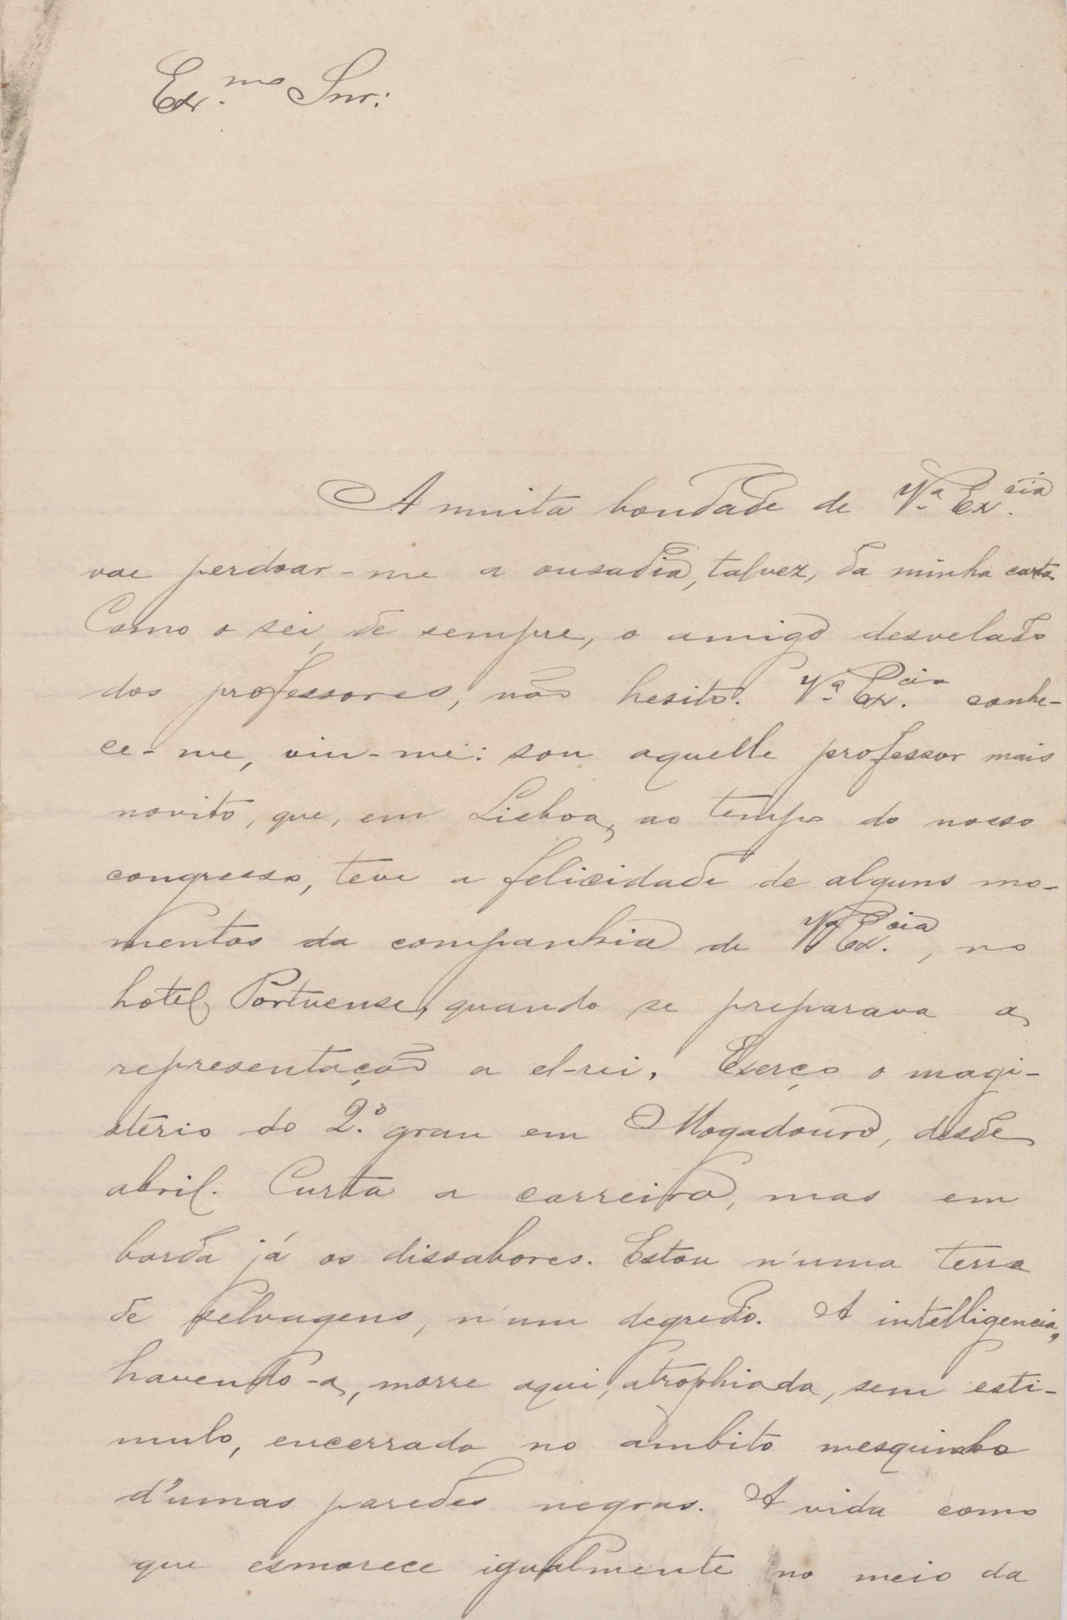 Ex.mo Snr:
A muita bondade de V.a Ex.cia
vae perdoar-me a ousadia, talvez, da minha carta.
Como o sei, de sempre, o amigo desvelado
dos professores, não hesito. V.a Ex.cia conhe-
ce-me, viu-me: sou aquelle professor mais
novito, que, em Lisboa, ao tempo do nosso
congresso, teve a felicidade de alguns mo-
mentos da companhia de V.a Ex.cia, no
hotel Portuense, quando se preparava a
representação a el-rei. Exerço o magi-
stério do 2.º grau em Mogadouro, desde
abril. Curta a carreira, mas em
barda já os dissabores. Estou n'uma terra
de selvagens, n'um degredo. A intelligencia,
havendo-a, morre aqui, atrophiada, sem esti-
mulo, encerrada no ambito mesquinho
d'umas paredes negras. A vida como
que esmorece igualmente no meio da